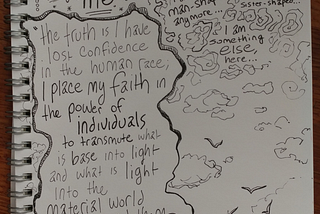 me
the truth is I have
lost confidence
in the human race,
I place my faith in
the power of
individuals
to transmute what
is base into light
and what is light
into the
material world
man-shap
anymore...
sister-shaped...
I am
something
else,
here...